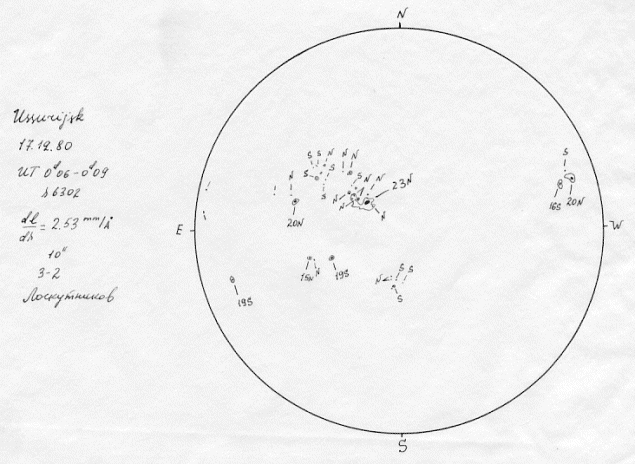 N
Ussurijsk
17.12.80
UT 0ʰ06 - 0ʰ09
λ 6302
dl/dλ = 2.53 mm/Å
10"
3-2
Лоскутников
E
W
S
S S N N N
S
N S S N N
23N
N N
20N
S
16S 20N
15N N 19S
19S
N S S
S